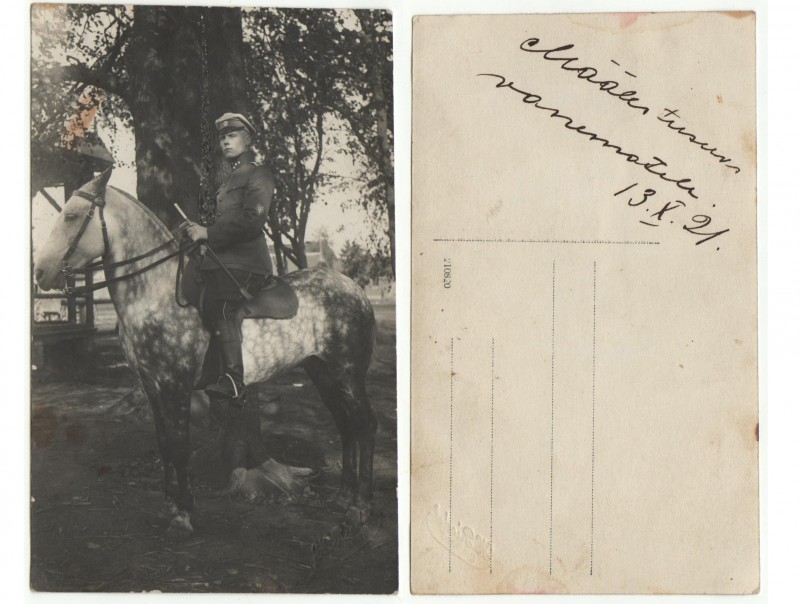 Määlestuseks
vanematele.
13.X.21.
210820